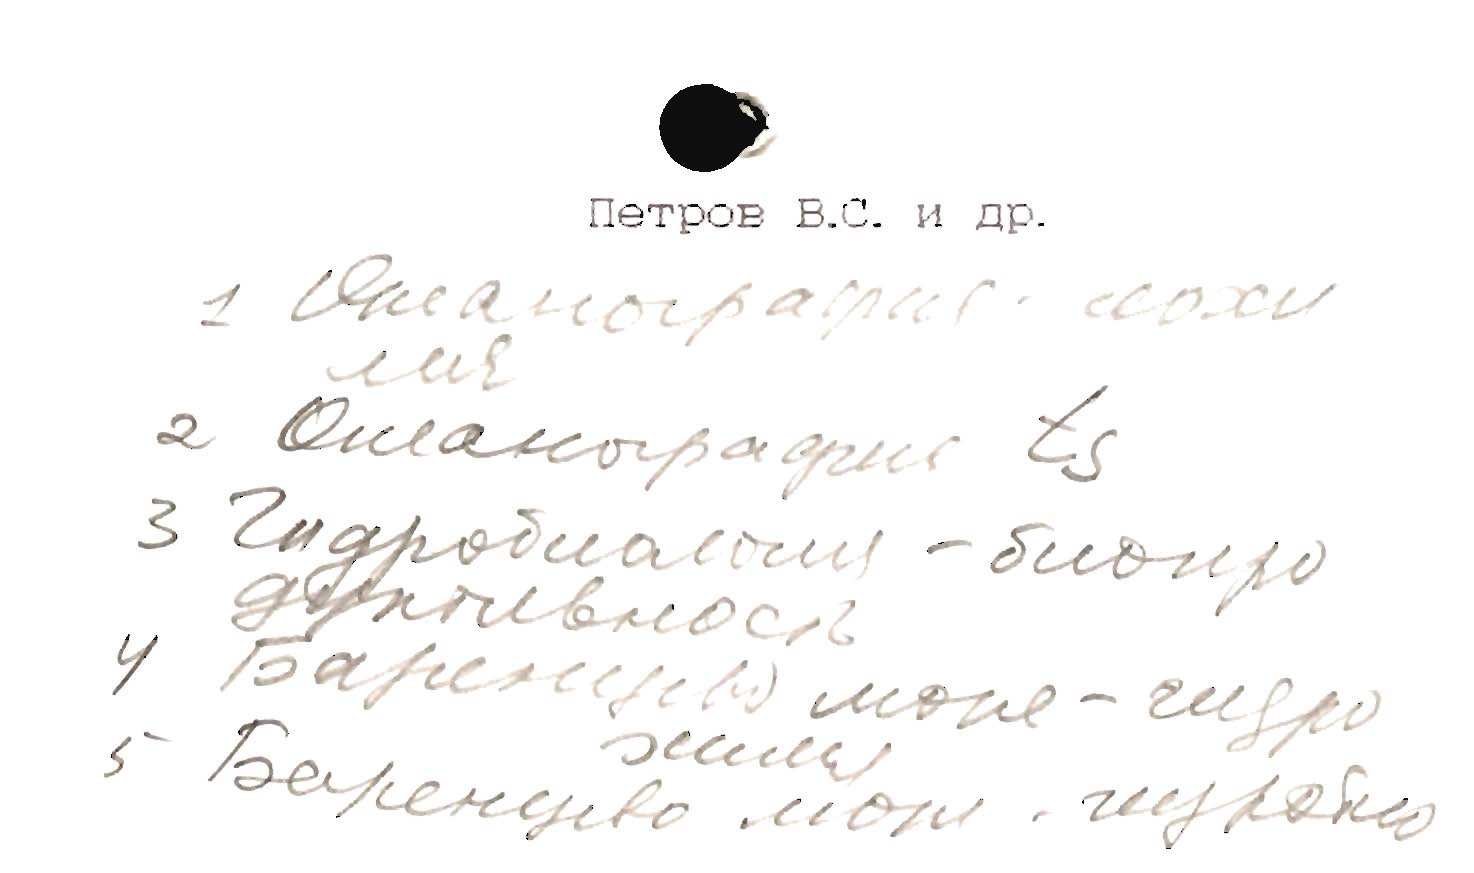 Петров В.С. и др.
1 Океанография - геохи
мия
2 Океанография ts
3 Гидробиология - биопро
дуктивность
4 Баренцево море - гидро
химия
5 Баренцево море - гидробио